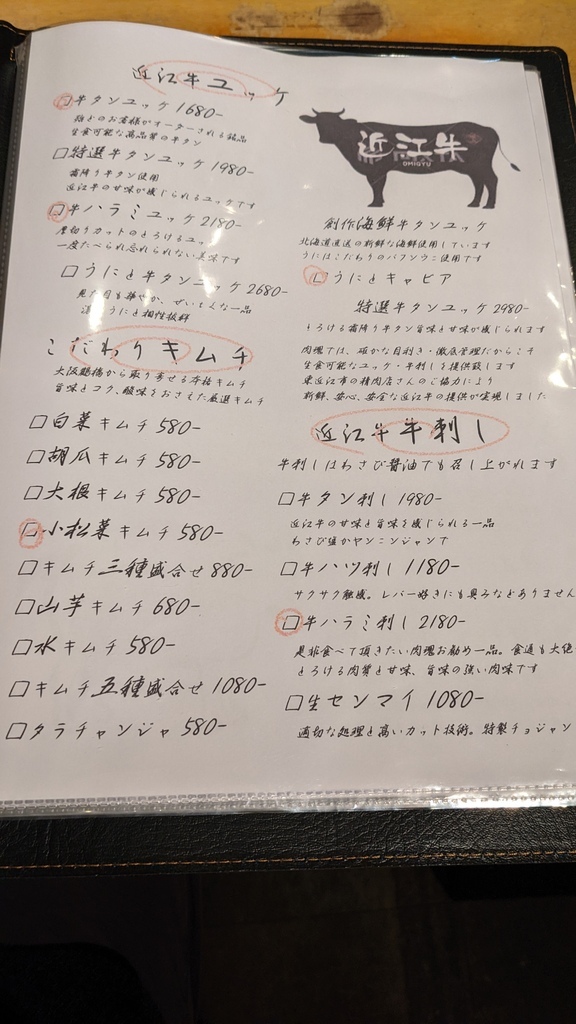 近江牛ユッケ
□牛タンユッケ 1680-
殆どのお客様がオーダーされる銘品
生食可能な高品質の牛タン
□特選牛タンユッケ 1980-
霜降り牛タン使用
近江牛の甘味が感じられるユッケです
□牛ハラミユッケ 2180-
厚切りカットのとろけるユッ
一度たべられ忘れられない美味です
□うにと牛タンユッケ 2680-
見た目も華やか、ぜいたくな一品
うにと相性抜群
こだわりキムチ
大阪鶴橋から取り寄せる本格キムチ
旨味とコク、酸味をおさえた厳選キムチ
□白菜キムチ 580-
□胡瓜キムチ 580-
□大根キムチ 580-
□小松菜キムチ 580-
□キムチ三種盛合せ 880-
□山芋キムチ 680-
□水キムチ 580-
□キムチ五種盛合せ 1080-
□タラチャンジャ 580-
近江牛
OMIGYU
創作海鮮牛タンユッケ
北海道直送の新鮮な海鮮使用しています
うにはこだわりのバフンウニ使用です
□うにとキャビア
特選牛タンユッケ 2980-
とろける霜降り牛タン旨味と甘味が感じられます
肉塊では、確かな目利き・徹底管理だからこそ
生食可能なユッケ・牛刺しを提供致します
東近江市の精肉店さんのご協力により
新鮮、安心、安全な近江牛の提供が実現しました
近江牛牛刺し
牛刺しはわさび醤油でも召し上がれます
□牛タン刺し 1980-
近江牛の甘味と旨味を感じられる一品
わさび塩かヤンニンジャンで
□牛ハツ刺し 1180-
サクサク触感。レバー好きにも臭みなどありません
□牛ハラミ刺し 2180-
是非食べて頂きたい肉塊お勧め一品。食通も大絶
とろける肉質と甘味、旨味の強い肉味です
□生センマイ 1080-
適切な処理と高いカット技術。特製チョジャン